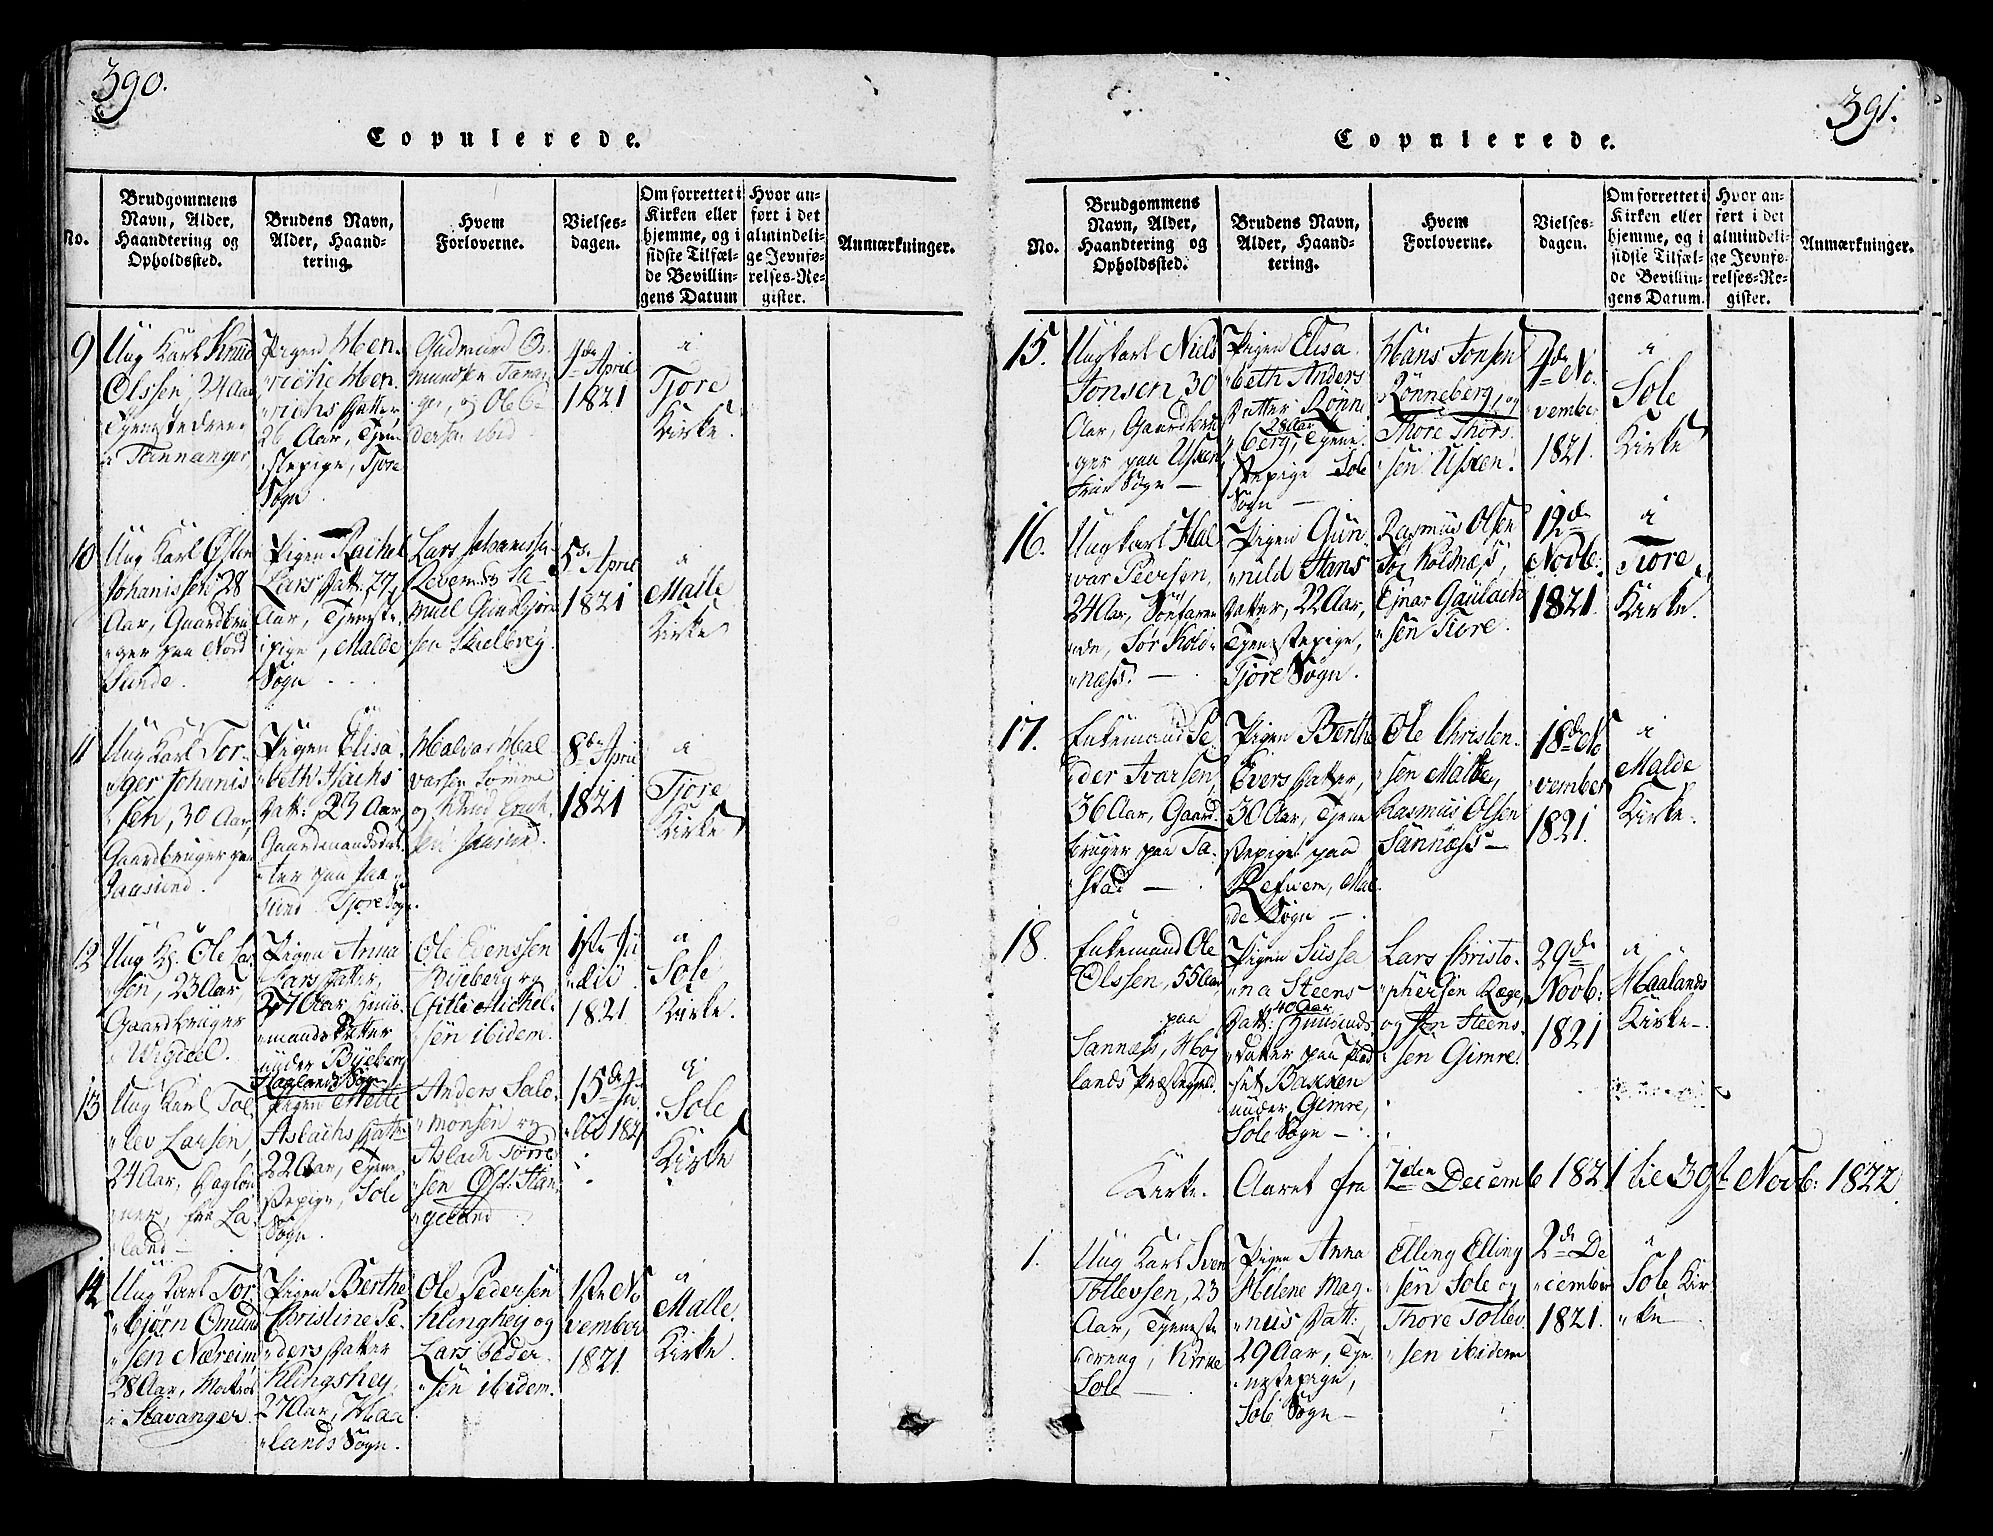 390.
Copulerede.
No.
Brudgommens
Navn, Alder,
Haandtering og
Opholdssted.
Brudens Navn,
Alder, Haand-
tering.
Hvem
Forloverne.
Vielses-
dagen.
Om forrettet i
Kirken eller
hjemme, og i
sidste Tilfæl-
de Bevillin-
gens Datum
Hvor an-
ført i det
almindeli-
ge Jevnfø-
relses-Re-
gister.
Anmærkninger.
9
Ung Karl Knud
Olssen, 24 Aar
Tjenestedreng
Pigen Hen-
riche Hen-
richs Datter
26 Aar, Tjene
stepige, Tjore
Sogn
Gudmund
og Ole
ibid
1de April
1821
i
Tjore
Kirke.
10
Ung Karl Østen
Johanissen 28
Aar, Gaardbru
ger paa Nord
Sunde.
Pigen Rachel
Lars Datt: 27
Aar, Tjeneste
pige, Malde
Sogn
Lars Johannesse
muel
sen
5te April
1821
i
Malle
Kirke
11
Ung Karl Tor-
ger Johanis
sen, 30 Aar,
Gaardbruger paa
Jaasund.
Pigen Elisa
beth
Datt: 23 Aar,
Gaardmandsdat
ter paa Jaa
sund Tjore Sogn.
Halvar Hal
varsen Sømme
og Knud Erick
sen Jaasund.
8de April
1821
i
Tjore
Kirke
12
Ung K: Ole Lar
sen, 23 Aar,
Gaardbruger
Wigdel.
Pigen Anna
Lars Datter,
27 Aar, Huus-
mands Datter
under Byeberg
Haalands Sogn
Ole Evenssen
Byeberg og
Gitle Michel
sen ibidem.
1ste Ju
lii
1821
i
Sole
Kirke.
13
Ung Karl Tol
lev Larsen,
24 Aar, Dagløn
ner, fra La
land
Pigen Mette
Aslachs Datt:
22 Aar, Tjene
stepige, Sole
Sogn.
Anders Salo
monsen og
Aslach Torre
sen Øst: Stan
geland
15de Ju
lii 1821
i
Sole
Kirke
14
Ung Karl Tor
bjørn Omund
sen Næreim
28 Aar, Matros
i Stavanger.
Pigen Berthe
Christine Pe-
ders Datter
Klingshey
27 Aar, Haa
lands Sogn.
Ole Pedersen
Klinghey og
Lars Peder
sen ibidem.
1ste No
vember
1821
i
Malle
Kirke
391.
Copulerede.
No.
Brudgommens
Navn, Alder,
Haandtering og
Opholdssted.
Brudens Navn,
Alder, Haand-
tering.
Hvem
Forloverne.
Vielses-
dagen.
Om forrettet i
Kirken eller
hjemme, og i
sidste Tilfæl-
de Bevillin-
gens Datum.
Hvor an-
ført i det
almindeli-
ge Jevnfø-
relses-Re-
gister.
Anmærkninger.
15.
Ungkarl Niels
Jonsen 30
Aar, Gaardbru
ger paa Usken
Frue Sogn
Pigen Elisa
beth Anders
Datter Rønne
28 Aar
berg, Tjene
stepige Sole
Sogn
Hans Jonsen
Rønneberg, og
Thore Thors
sen Usken.
4de No
vember
1821.
i
Sole
Kirke
16.
Ungkarl Hal
var Peersen,
24 Aar,
de, Sør Kol
næss.
Pigen Gun
nild Hans
Datter, 22 Aar,
Tjenestepige,
Tjore Sogn.
Rasmus Olsen
Sør Kolnæss,
Ejnar Gaulach
sen Tiore.
12de
Novb:
1821.
i
Tiore
Kirke.
17.
Enkemand Pe
der Ivarsen,
36 Aar, Gaard
bruger paa Ta
stad
Pigen Berthe
Evers Datter,
30 Aar, Tjene
stepige paa
Refwem, Mal
de Sogn
Ole Christen
sen Malde,
Rasmus Olsen
Sannæss
18de No
vember
1821.
i
Malde
Kirke.
18.
Enkemand Ole
Olssen, 55 Aar
paa
Sannæss, Høj
lands Præstegjeld.
Pigen Susse
na Steens
40 Aar
Datt: Huusmds
datter paa Plad
set Bakken
under Gimre,
Sole Sogn
Lars Christo
phersen Ræge,
og Jon Steens
sen Gimre.
29de
Novb:
1821
i
Haalands
Kirke
Kirke. Aaret fra 1den Decemb 1821 til 30te Novb: 1822.
1.
Ung Karl Sven
Tollevsen, 23
Aar, Tjeneste
dreng, Kirke
Sole
Pigen Anna
Helene Mag
nus Datt:
29 Aar, Tje
nestepige,
Sole Sogn
Elling Elling
sen Sole og
Thore Tollev
sen ibidem
2de De
cember
1821.
i
Sole Kir
ke